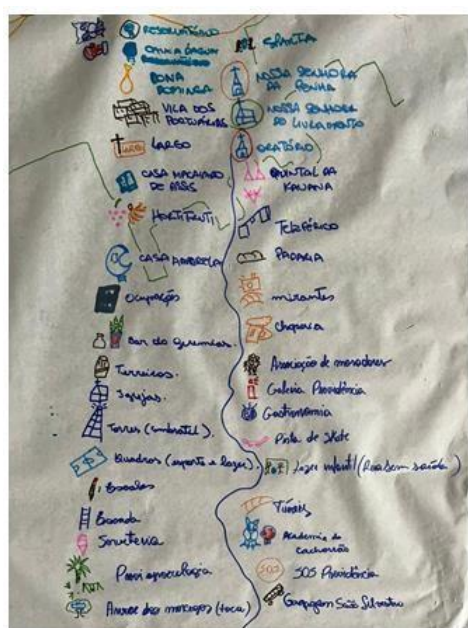 RESERVATÓRIO
CAIXA D'ÁGUA
DONA
DOMINGA
VILA DOS
PORTUÁRIAS
LARGO
CASA MACHADO
DE ASSIS
HORTIFRUTI
CASA AMARELA
Ocupação
Bar do Jeremias.
Terreiros.
Igrejas.
Torres (embratel).
Quadros (esporte e lazer).
Escolas
Escada
Sorveteria
Árvore dos morcegos (toca)
NOSSA SENHORA
DA PENHA
NOSSA SENHORA
DO LIVRAMENTO
ORATÓRIO
QUINTAL DA
TELEFÉRICO
PADARIA
mirantes
Associação de moradores
Galeria Providência
Gastronomia
Pista de Skate
Lazer infantil (Rua sem saída)
Túneis
Academia do
cachorrão
SOS
SOS Providência
Garagem São Silvestre